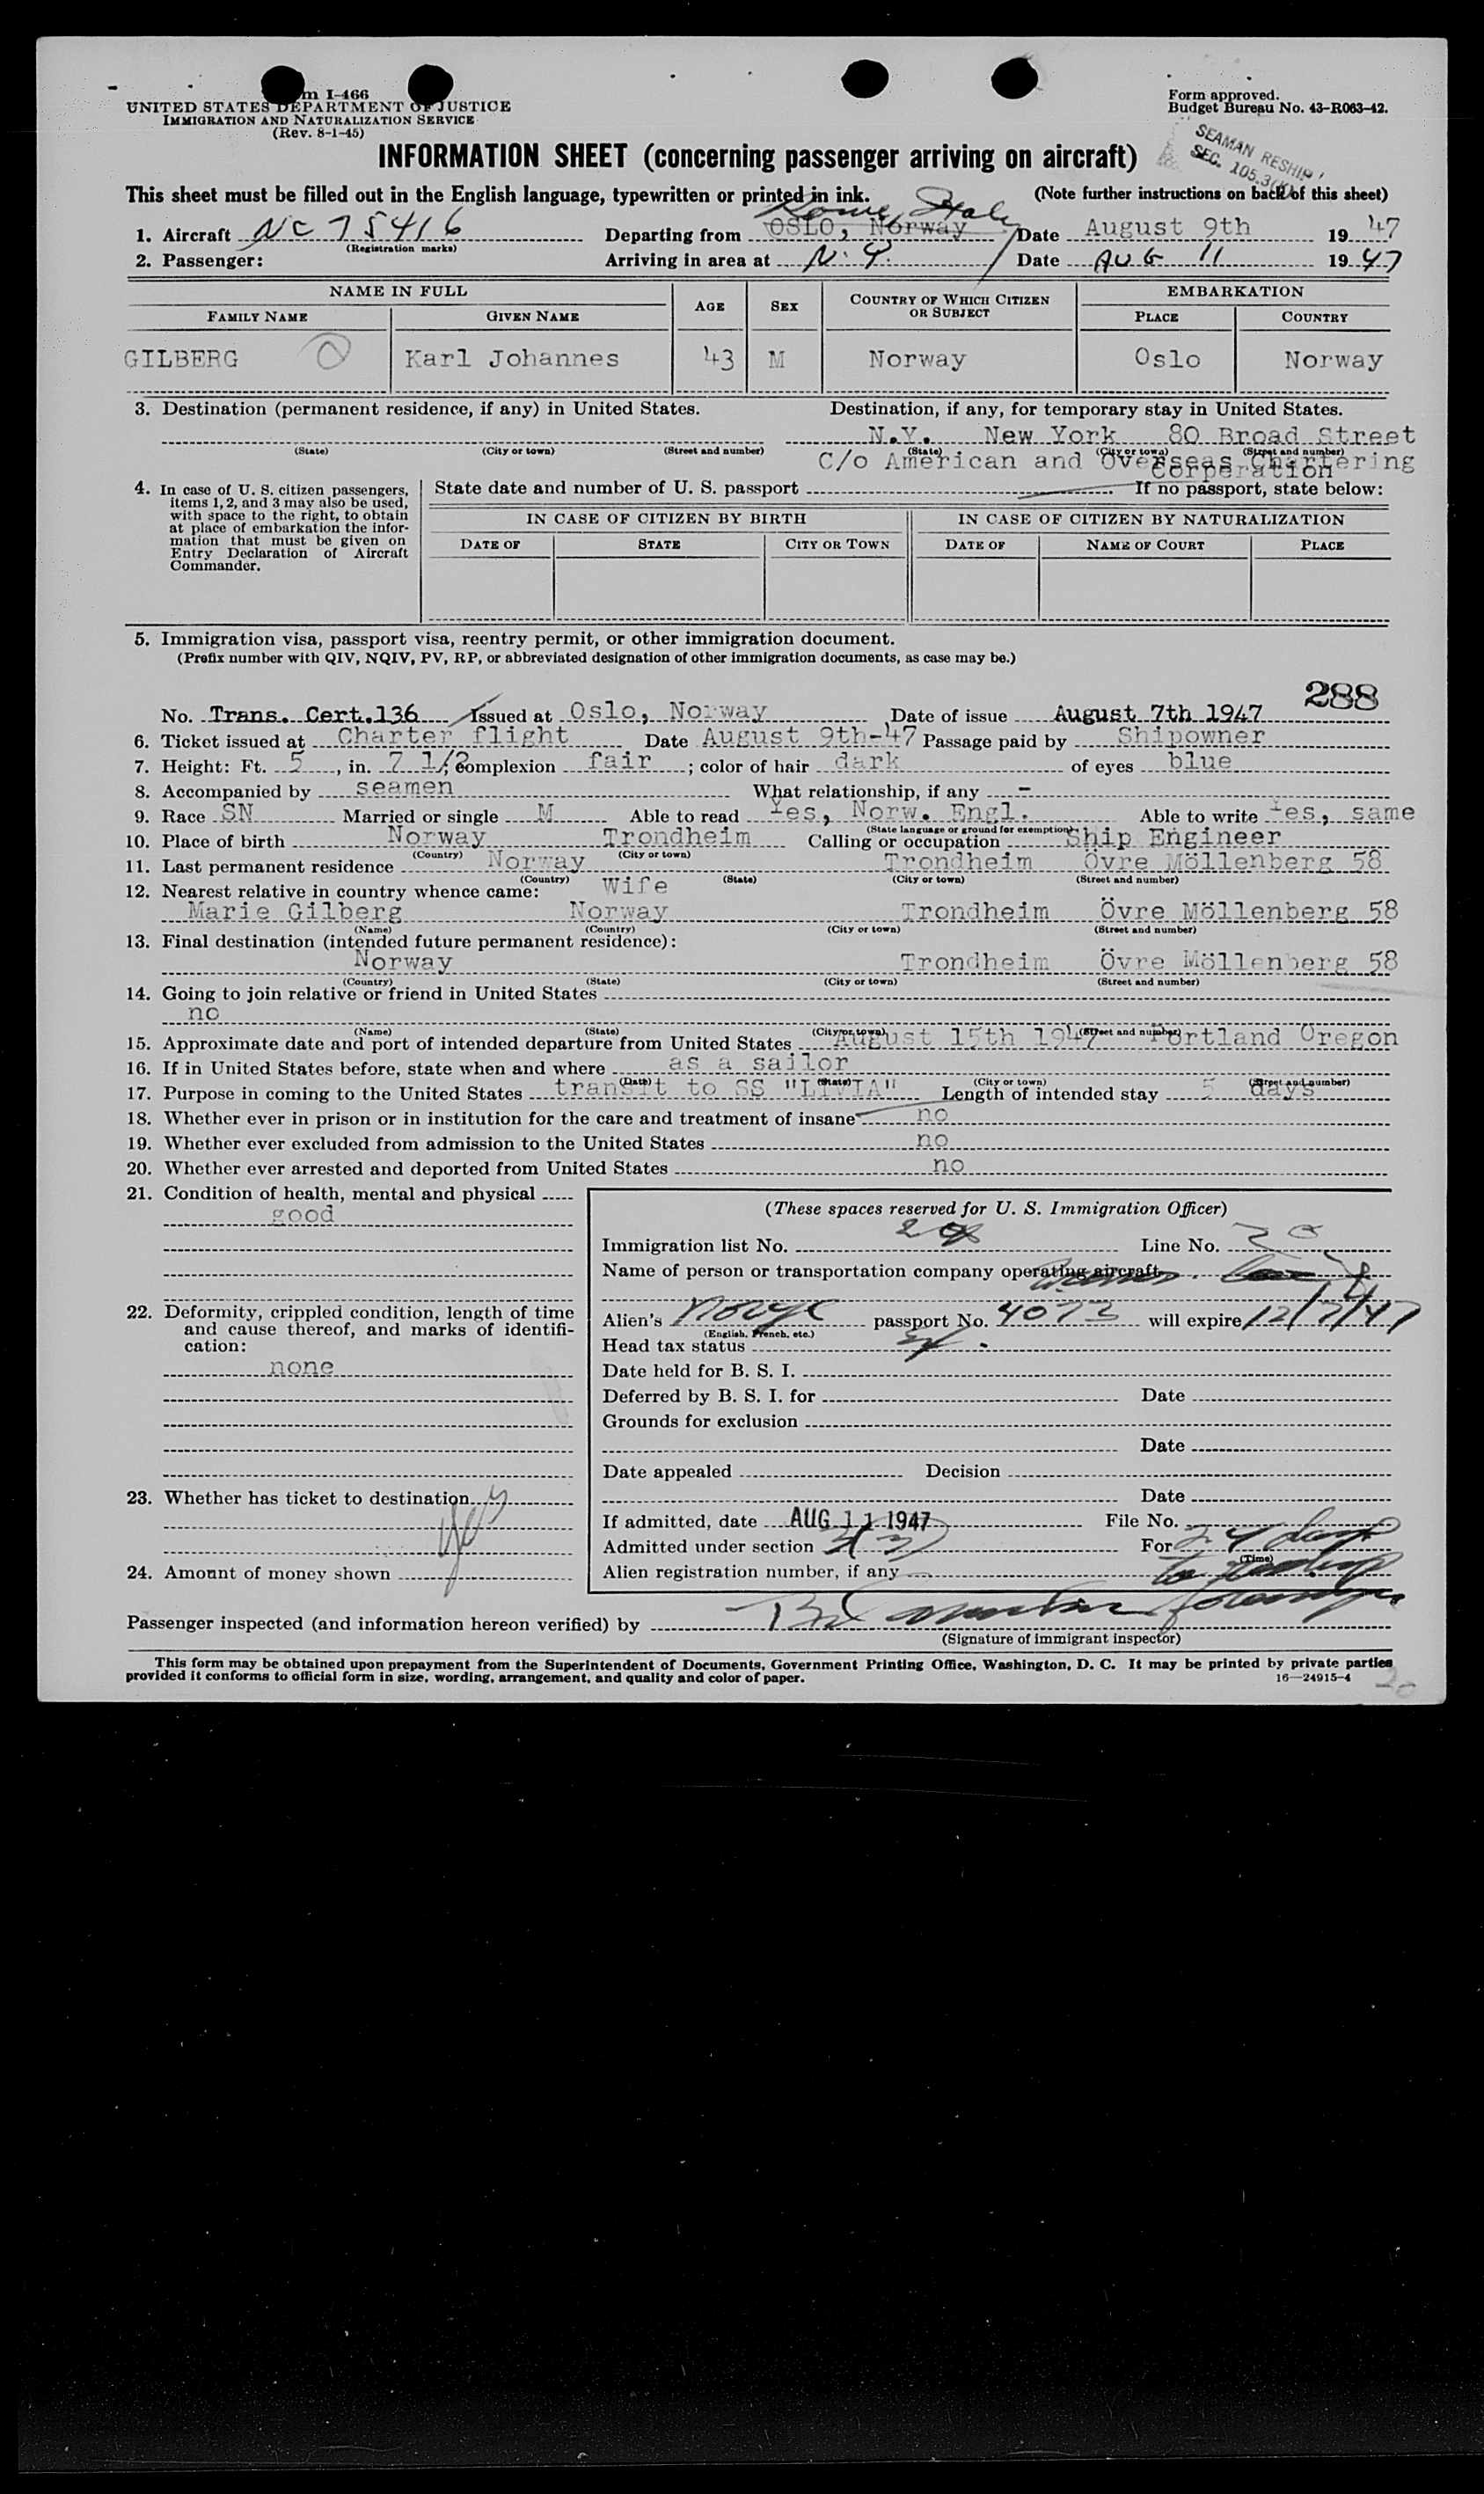 m I-466
UNITED STATES DEPARTMENT OF JUSTICE
IMMIGRATION AND NATURALIZATION SERVICE
(Rev. 8-1-45)
Form approved.
Budget Bureau No. 43-R063-42.
SEAMAN RESHIP
SEC. 105.3
INFORMATION SHEET (concerning passenger arriving on aircraft)
This sheet must be filled out in the English language, typewritten or printed in ink.
(Note further instructions on back of this sheet)
Rome, Italy
1. Aircraft NC 75416 Departing from OSLO, Norway Date August 9th 1947
(Registration marks)
2. Passenger: Arriving in area at N. Y. Date AUG 11 1947
NAME IN FULL AGE SEX COUNTRY OF WHICH CITIZEN OR SUBJECT EMBARKATION
FAMILY NAME GIVEN NAME PLACE COUNTRY
GILBERG Karl Johannes 43 M Norway Oslo Norway
3. Destination (permanent residence, if any) in United States. Destination, if any, for temporary stay in United States.
N.Y. New York 80 Broad Street
(State) (City or town) (Street and number) (State) (City or town) (Street and number)
C/o American and Overseas Chartering
Corperation
4. In case of U. S. citizen passengers, items 1, 2, and 3 may also be used, with space to the right, to obtain at place of embarkation the information that must be given on Entry Declaration of Aircraft Commander.
State date and number of U. S. passport If no passport, state below:
IN CASE OF CITIZEN BY BIRTH IN CASE OF CITIZEN BY NATURALIZATION
DATE OF STATE CITY OR TOWN DATE OF NAME OF COURT PLACE
5. Immigration visa, passport visa, reentry permit, or other immigration document.
(Prefix number with QIV, NQIV, PV, RP, or abbreviated designation of other immigration documents, as case may be.)
288
No. Trans. Cert.136 Issued at Oslo, Norway Date of issue August 7th 1947
6. Ticket issued at Charter flight Date August 9th-47 Passage paid by Shipowner
7. Height: Ft. 5, in. 7 1/2; complexion fair; color of hair dark of eyes blue
8. Accompanied by seamen What relationship, if any -
9. Race SN Married or single M Able to read Yes, Norw. Engl. Able to write Yes, same
(State language or ground for exemption)
10. Place of birth Norway Trondheim Calling or occupation Ship Engineer
(Country) (City or town)
11. Last permanent residence Norway Trondheim Övre Möllenberg 58
(Country) (State) (City or town) (Street and number)
12. Nearest relative in country whence came: Wife
Marie Gilberg Norway Trondheim Övre Möllenberg 58
(Name) (Country) (City or town) (Street and number)
13. Final destination (intended future permanent residence):
Norway Trondheim Övre Möllenberg 58
(Country) (State) (City or town) (Street and number)
14. Going to join relative or friend in United States
no
(Name) (State) (City or town) (Street and number)
15. Approximate date and port of intended departure from United States August 15th 1947 Portland Oregon
16. If in United States before, state when and where as a sailor
(Date) (State) (City or town) (Street and number)
17. Purpose in coming to the United States transit to SS "LIVIA" Length of intended stay 5 days
18. Whether ever in prison or in institution for the care and treatment of insane no
19. Whether ever excluded from admission to the United States no
20. Whether ever arrested and deported from United States no
21. Condition of health, mental and physical
good
22. Deformity, crippled condition, length of time and cause thereof, and marks of identification:
none
23. Whether has ticket to destination
yes
24. Amount of money shown
(These spaces reserved for U. S. Immigration Officer)
Immigration list No. Line No. 20
Name of person or transportation company operating aircraft
Alien's Norge passport No. 4073 will expire 12/7/47
(English, French, etc.)
Head tax status
Date held for B. S. I.
Deferred by B. S. I. for Date
Grounds for exclusion
Date
Date appealed Decision
Date
If admitted, date AUG 11 1947 File No.
Admitted under section 3(3) For 24 days
(Time)
Alien registration number, if any
Passenger inspected (and information hereon verified) by
(Signature of immigrant inspector)
This form may be obtained upon prepayment from the Superintendent of Documents, Government Printing Office, Washington, D. C. It may be printed by private parties
provided it conforms to official form in size, wording, arrangement, and quality and color of paper.
16—24915-4
20